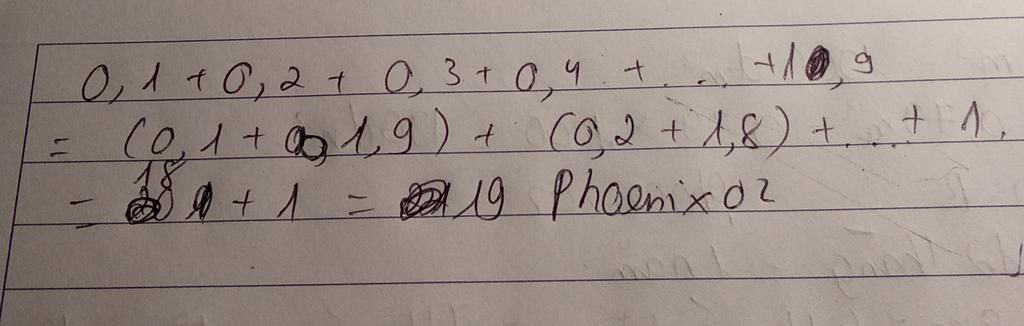 0,1 + 0,2 + 0,3 + 0,4 + ... + 1,9
= (0,1 + 1,9) + (0,2 + 1,8) + ... + 1.
= 18 + 1 = 19 Phoenix02